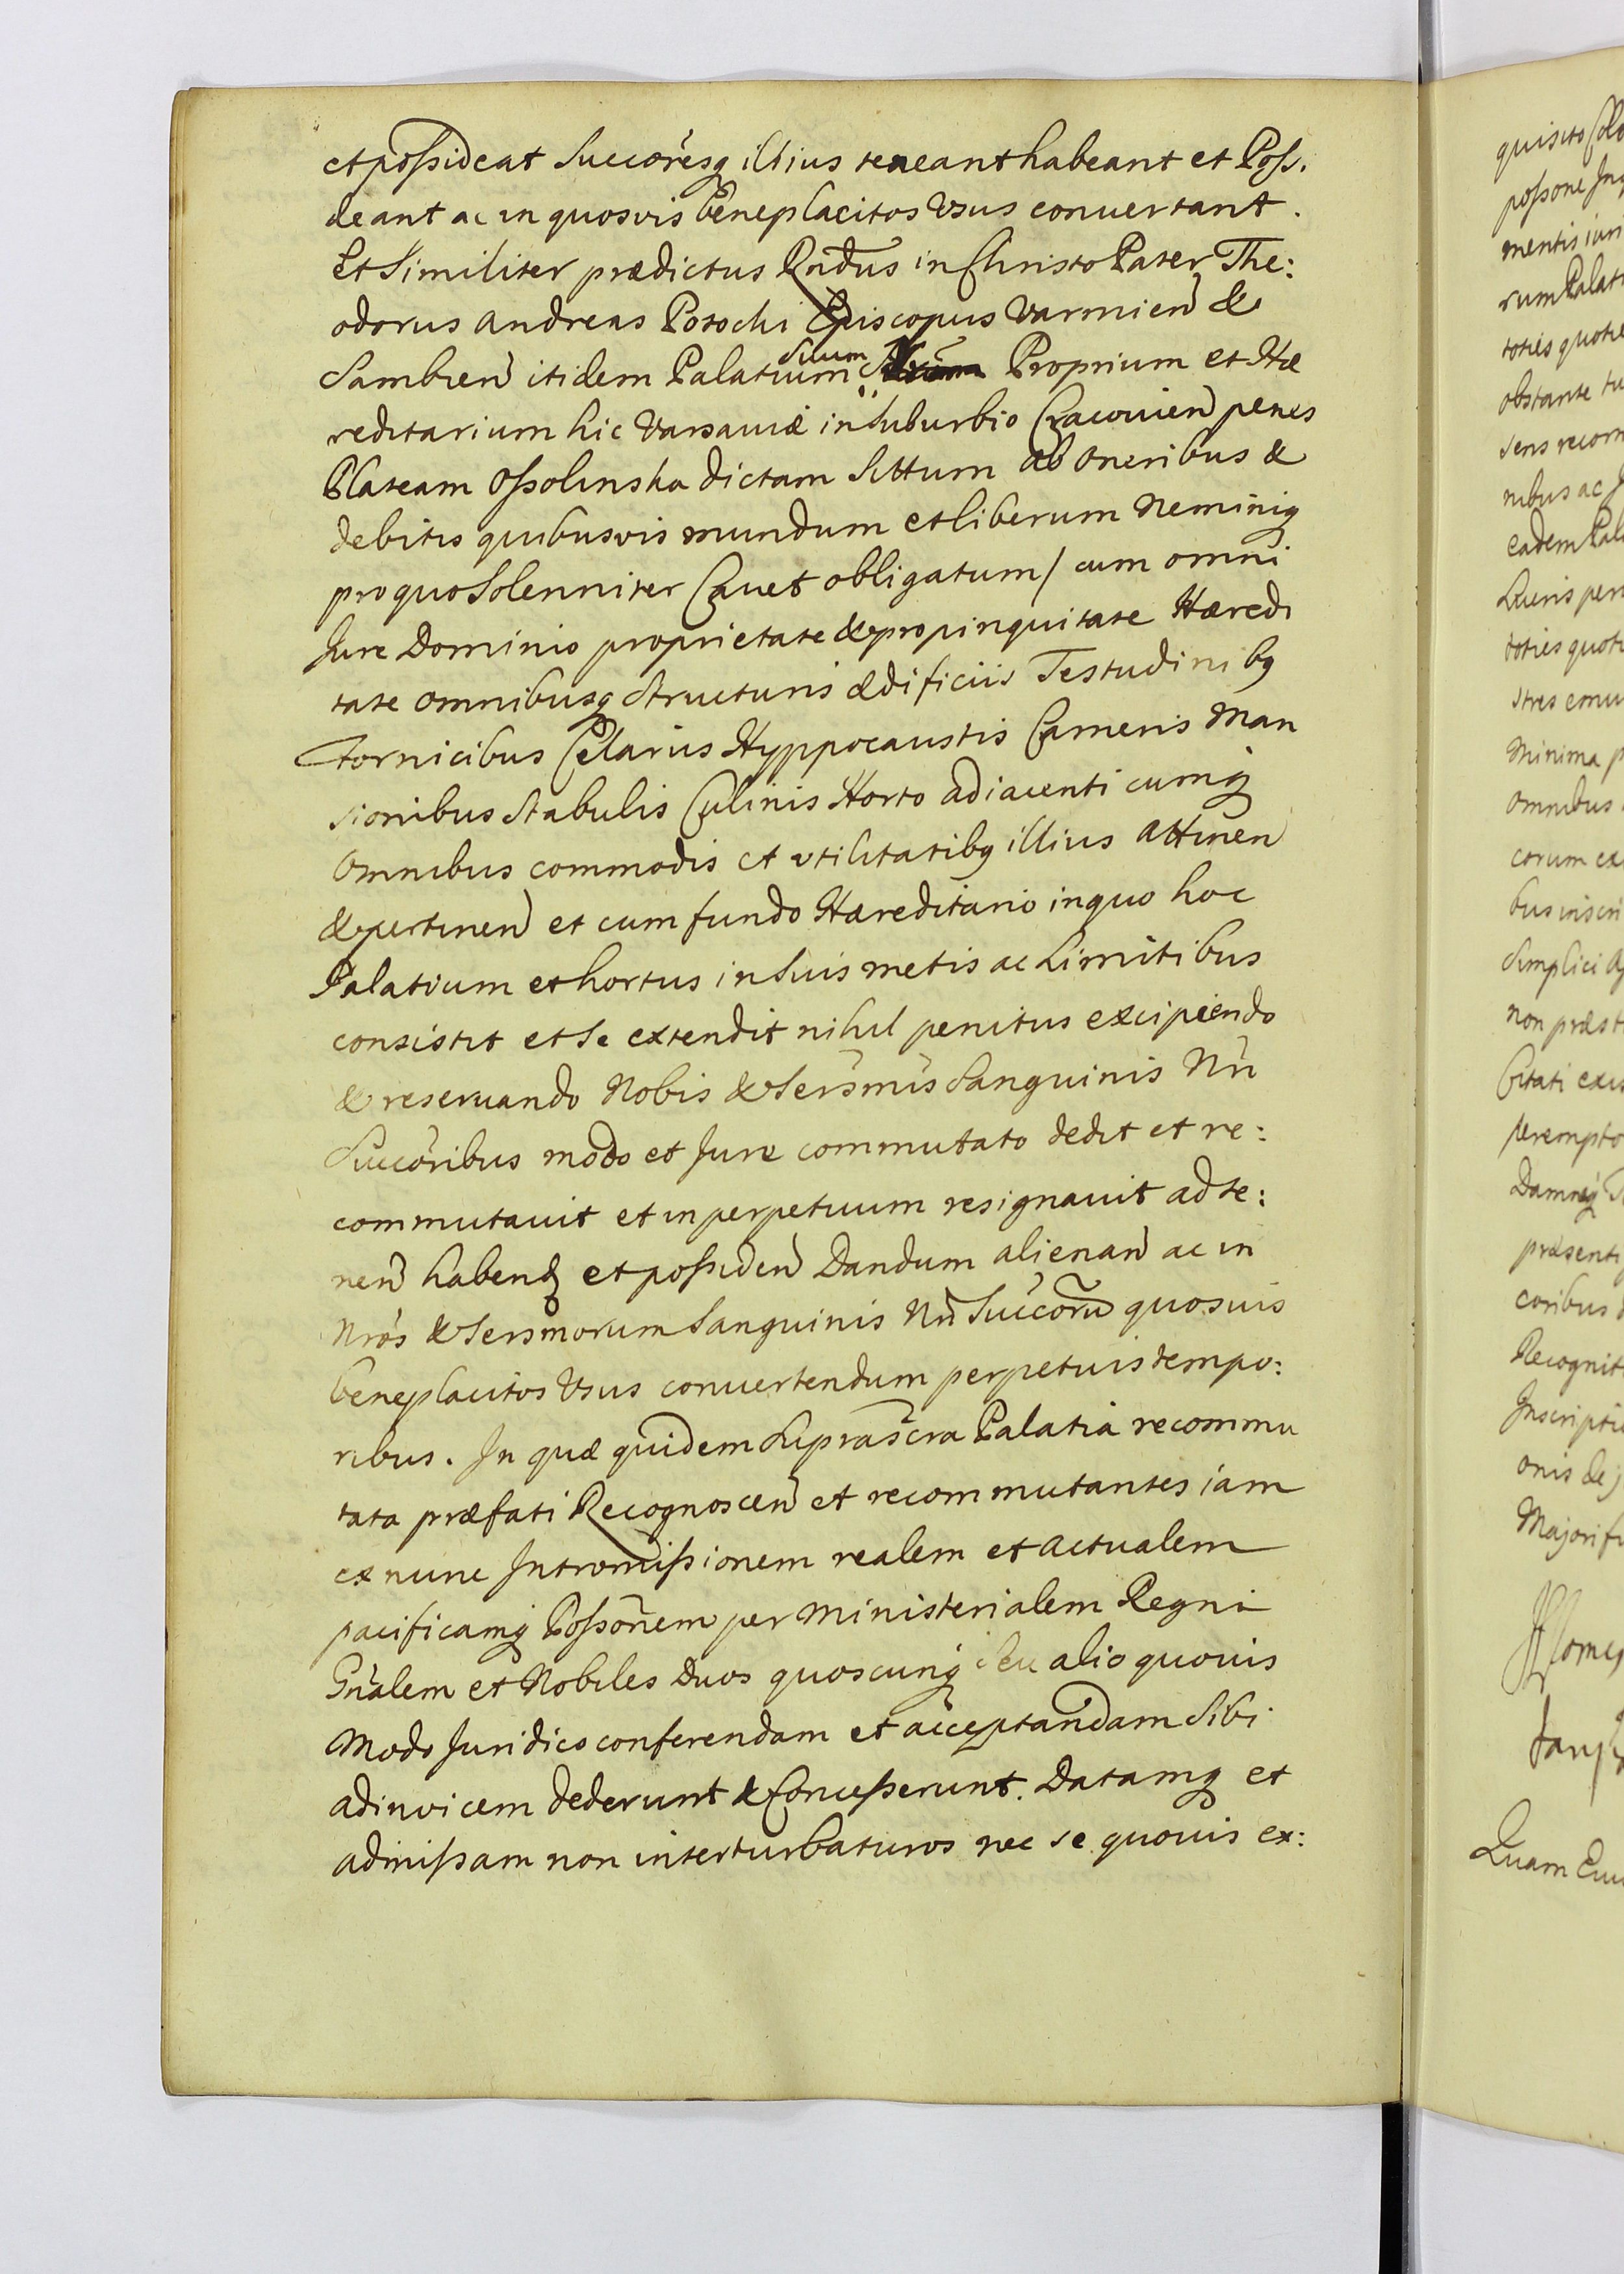 et possideat Succoresq illius teneant habeant et Possi
deant ac in quosvis beneplacitos Vsus conuertant.
Et Similiter prædictus Rndus in Christo Pater The:
odorus Andreas Potocki Episcopus Varmien &
Sambien itidem Palatium Suum Proprium et Hæ
reditarium hic Varsauiæ in Suburbio Cracouien penes
Plateam Ossolinska dictam Sittum ab Oneribus &
debitis quibusvis mundum et liberum Neminiq
pro quo Solenniter Cauet obligatum / cum omni
Jure Dominio proprietate & propinquitate Hæredi
tate omnibusq Structuris ædificiis Testudinibq
Fornicibus Celariis Hyppocaustis Cameris Man
sionibus Stabulis Culinis Horto adiacenti cumq
Omnibus commodis et vtilitatibq illius Attinen
& pertinen et cum fundo Hæreditario in quo hoc
Palatium et hortus in Suis metis ac Limitibus
consistit et Se extendit nihil penitus excipiendo
& reseruando Nobis & Sersmis Sanguinis Nri
Succoribus modo et Jure commutato dedit et re:
commutauit et in perpetuum resignauit ad te:
nen habend et possiden Dandum alienan ac in
Nros & Sersmorum Sanguinis Nri Succorum quosuis
beneplacitos Vsus conuertendum perpetuis tempo:
ribus. In quæ quidem Suprascra Palatia recommu
tata præfati Recognoscen et recommutantes iam
ex nunc Intromissionem realem et actualem
pacificamq Possonem per Ministerialem Regni
Gnalem et Nobiles Duos quoscunq seu alio quouis
Modo Juridico conferendam et acceptandam Sibi
adinvicem dederunt & Concesserunt. Datamq et
admissam non interturbaturos nec se quouis ex: